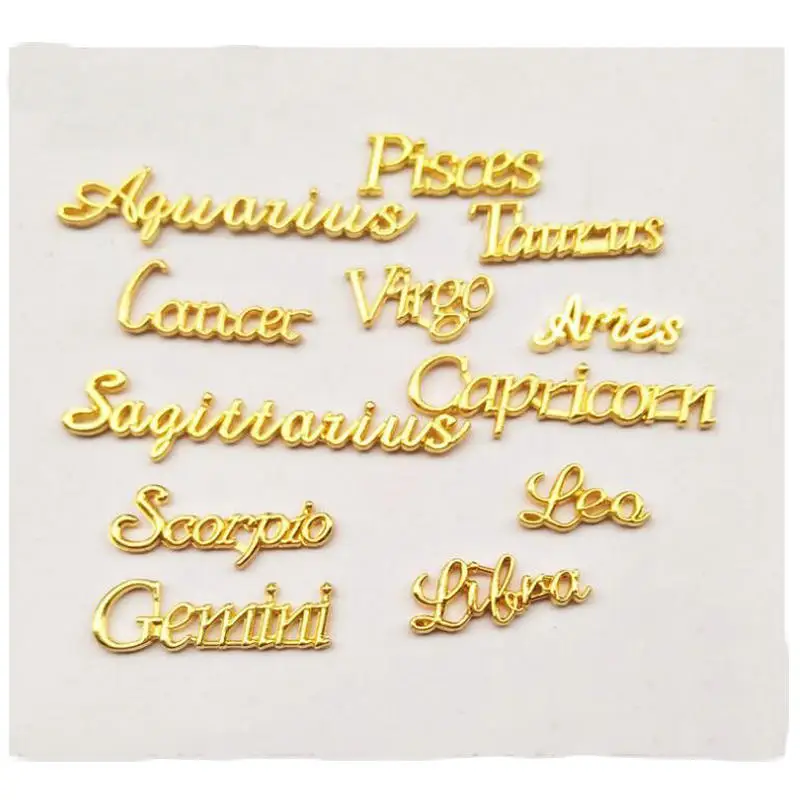 Pisces
Aquarius
Taurus
Cancer
Virgo
Aries
Capricorn
Sagittarius
Leo
Scorpio
Libra
Gemini